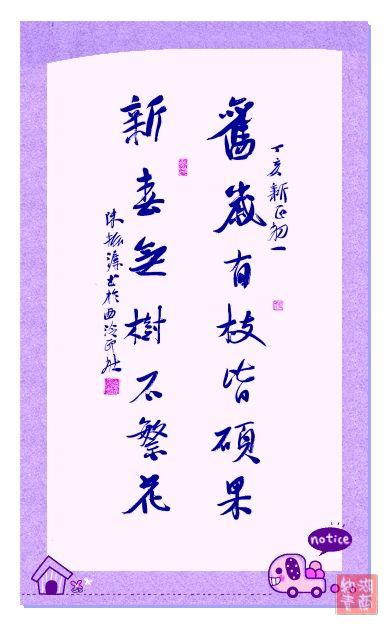 丁亥新正初一
舊歲有枝皆碩果
新春無樹不繁花
陳振濂书於西泠印社
notice